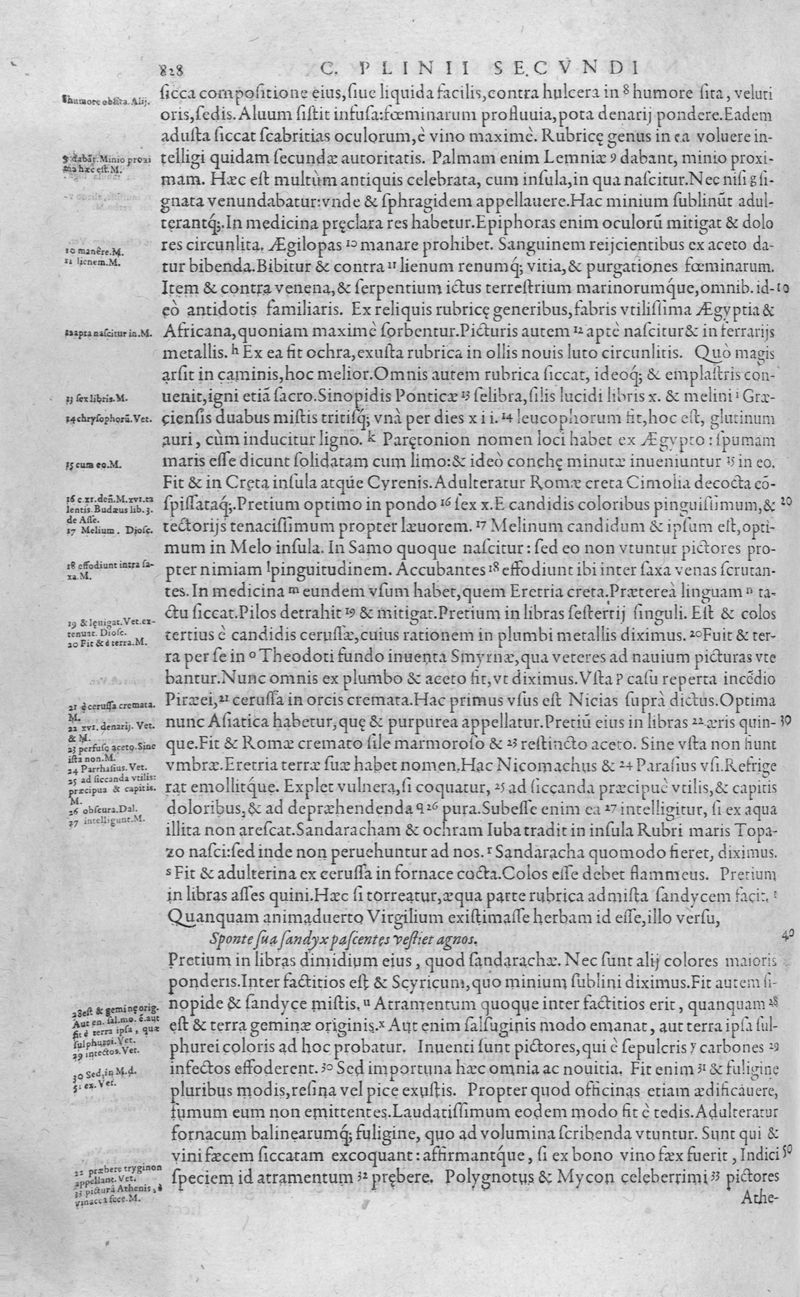 828
C. PLINII SECVNDI
ſicca compoſitione eius,ſiue liquida facilis,contra hulcera in 8 humore ſita, veluti
oris,ſedis.Aluum ſiſtit infuſa:fœminarum profluuia,pota denarij pondere.Eadem
aduſta ſiccat ſcabritias oculorum,è vino maximè. Rubricę genus in ea voluere in-
telligi quidam ſecundæ autoritatis. Palmam enim Lemniæ 9 dabant, minio proxi-
mam. Hæc eſt multùm antiquis celebrata, cum inſula,in qua naſcitur.Nec niſi g ſi-
gnata venundabatur:vnde & ſphragidem appellauere.Hac minium ſublinūt adul-
terantq;.In medicina pręclara res habetur.Epiphoras enim oculorū mitigat & dolo
res circunlita. Ægilopas 10 manare prohibet. Sanguinem reijcientibus ex aceto da-
tur bibenda.Bibitur & contra 11 lienum renumq; vitia,& purgationes fœminarum.
Item & contra venena,& ſerpentium ictus terreſtrium marinorumque,omnib. id- 10
eò antidotis familiaris. Ex reliquis rubricę generibus,fabris vtiliſſima Ægyptia &
Africana,quoniam maximè ſorbentur.Picturis autem 12 aptè naſcitur & in ferrarijs
metallis. h Ex ea fit ochra,exuſta rubrica in ollis nouis luto circunlitis. Quò magis
arſit in caminis,hoc melior.Omnis autem rubrica ſiccat, ideoq; & emplaſtris con-
uenit,igni etiā ſacro.Sinopidis Ponticæ 13 ſelibra,ſilis lucidi libris x. & melini i Græ-
cienſis duabus miſtis tritiſq; vnà per dies x i i. 14 leucophorum fit,hoc eſt, glutinum
auri, cùm inducitur ligno. k Parętonion nomen loci habet ex Ægypto: ſpumam
maris eſſe dicunt ſolidatam cum limo:& ideò conchę minutæ inueniuntur 15 in eo.
Fit & in Creta inſula atque Cyrenis.Adulteratur Romæ creta Cimolia decocta cō-
ſpiſſataq;.Pretium optimo in pondo 16 ſex x.E candidis coloribus pinguiſſimum,& 20
tectorijs tenaciſſimum propter læuorem. 17 Melinum candidum & ipſum eſt,opti-
mum in Melo inſula. In Samo quoque naſcitur: ſed eo non vtuntur pictores pro-
pter nimiam l pinguitudinem. Accubantes 18 effodiunt ibi inter ſaxa venas ſcrutan-
tes. In medicina m eundem vſum habet,quem Eretria creta.Præterea linguam n ta-
ctu ſiccat.Pilos detrahit 19 & mitigat.Pretium in libras ſeſtertij ſinguli. Eſt & colos
tertius è candidis ceruſſæ,cuius rationem in plumbi metallis diximus. 20 Fuit & ter-
ra per ſe in o Theodoti fundo inuenta Smyrnæ,qua veteres ad nauium picturas vte
bantur.Nunc omnis ex plumbo & aceto fit,vt diximus.Vſta P caſu reperta incēdio
Piræei, 21 ceruſſa in orcis cremata.Hac primus vſus eſt Nicias ſuprà dictus.Optima
nunc Aſiatica habetur,quę & purpurea appellatur.Pretiū eius in libras 22 æris quin- 30
que.Fit & Romæ cremato ſile marmoroſo & 23 reſtincto aceto. Sine vſta non fiunt
vmbræ.Eretria terræ ſuæ habet nomen.Hac Nicomachus & 24 Paraſius vſi.Refrige
rat emollitque. Explet vulnera,ſi coquatur, 25 ad ſiccanda præcipuè vtilis,& capitis
doloribus,& ad depræhendenda q 26 pura.Subeſſe enim ea 27 intelligitur, ſi ex aqua
illita non areſcat.Sandaracham & ochram Iuba tradit in inſula Rubri maris Topa-
zo naſci:ſed inde non peruehuntur ad nos. r Sandaracha quomodo fieret, diximus.
s Fit & adulterina ex ceruſſa in fornace cocta.Colos eſſe debet flammeus. Pretium
in libras aſſes quini.Hæc ſi torreatur,æqua parte rubrica admiſta ſandycem facit. t
Quanquam animaduerto Virgilium exiſtimaſſe herbam id eſſe,illo verſu,
Sponte ſua ſandyx paſcentes veſtiet agnos. 40
Pretium in libras dimidium eius, quod ſandarachæ. Nec ſunt alij colores maioris
ponderis.Inter factitios eſt & Scyricum,quo minium ſublini diximus.Fit autem ſi-
nopide & ſandyce miſtis. u Atramentum quoque inter factitios erit, quanquam 28
eſt & terra geminæ originis. x Aut enim ſalſuginis modo emanat, aut terra ipſa ſul-
phurei coloris ad hoc probatur. Inuenti ſunt pictores,qui è ſepulcris y carbones 29
infectos effoderent. 30 Sed importuna hæc omnia ac nouitia. Fit enim 31 & fuligine
pluribus modis,reſina vel pice exuſtis. Propter quod officinas etiam ædificauere,
fumum eum non emittentes.Laudatiſſimum eodem modo fit è tedis.Adulteratur
fornacum balinearumq; fuligine, quo ad volumina ſcribenda vtuntur. Sunt qui &
vini fæcem ſiccatam excoquant: affirmantque, ſi ex bono vino fæx fuerit, Indici 50
ſpeciem id atramentum 32 prębere. Polygnotus & Mycon celeberrimi 33 pictores
Athe-
8 humore obſita. Alij.
9 dabāt.Minio proxi
ma hæc eſt.M.
10 manêre.M.
11 lienem.M.
12 apta naſcitur in.M.
13 ſex libris.M.
14 chryſophorū.Vet.
15 cum eo.M.
16 c.xr.den.M.xvi.ta
lentis.Budæus lib.3.
de Aſſe.
17 Melium. Dioſc.
18 effodiunt intra ſa-
xa.M.
19 & lęuigat.Vet.ex-
tenuat. Dioſc.
20 Fit & è terra.M.
21 è ceruſſa cremata.
M.
22 xvi. denarij. Vet.
& M.
23 perfuſo aceto.Sine
iſta non.M.
24 Parrhaſius.Vet.
25 ad ſiccanda vtilis:
præcipua & capitis.
M.
26 obſcura.Dal.
27 intelligunt.M.
28 eſt & geminę orig.
Aut en. ſal.mo. ē.aut
fit è terra ipſa, quæ
ſulphuroſi.Vet.
29 iniectos.Vet.
30 Sed.in M.d.
31 ex. Vet.
32 præbere tryginon
appellant.Vet.
33 picturā Athenis, è
vinacea fece.M.